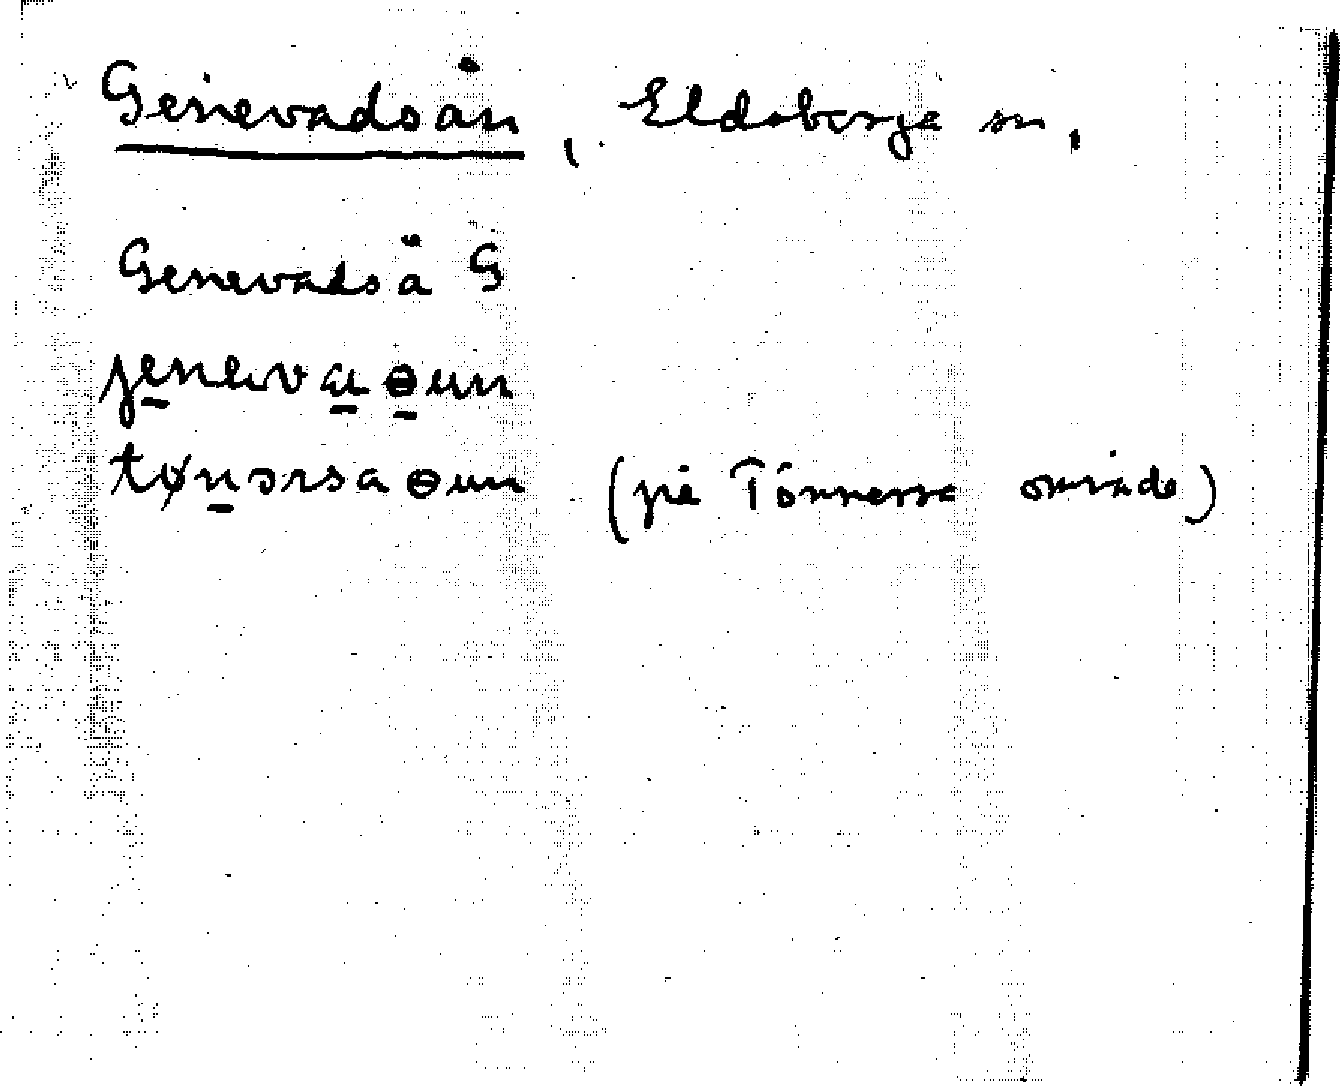 Genevadsån, Eldsberga sn,
Genevadså G
jenevaɵun
tønərsaɵun (på Tönnersa område)